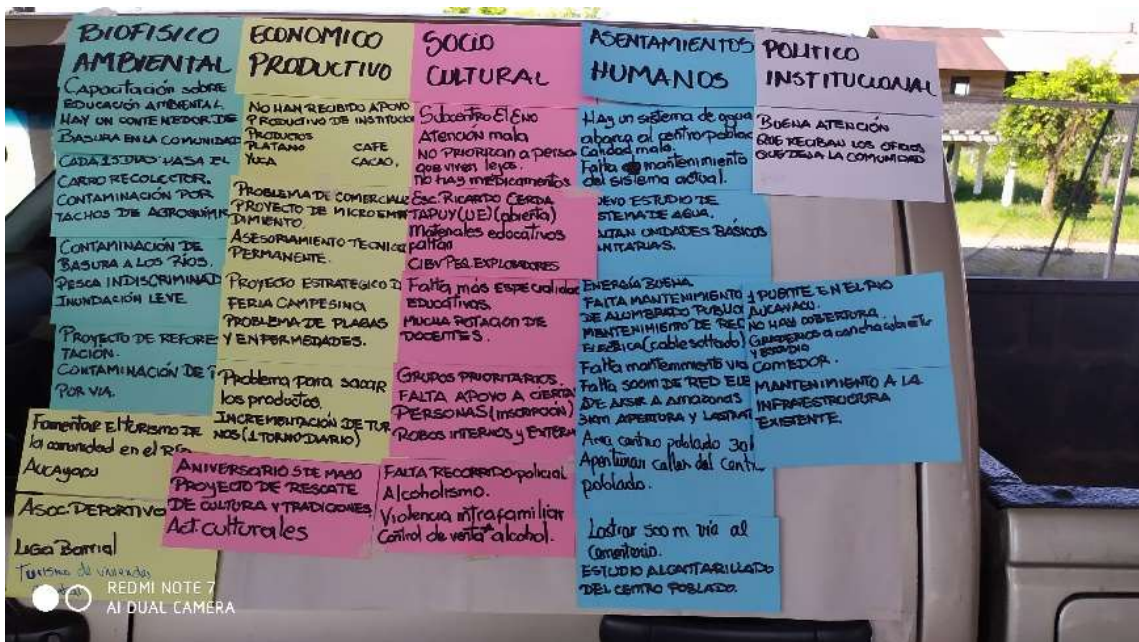 BIOFISICO
AMBIENTAL
Capacitación sobre
EDUCACIÓN AMBIENTAL
HAY UN CONTENEDOR DE
BASURA EN LA COMUNIDAD
CADA 15 DIAS PASA EL
CARRO RECOLECTOR.
CONTAMINACIÓN POR
TACHOS DE
CONTAMINACIÓN DE
BASURA A LOS RÍOS.
PESCA
INUNDACIÓN LEVE
PROYECTO DE REFORES
TACIÓN.
CONTAMINACIÓN DE
POR VIA.
Fomentar El turismo DE
la comunidad en el Río
AUCAYACU
ASOC. DEPORTIVO
LIGA Barrial
Turismo de
ECONOMICO
PRODUCTIVO
NO HAN RECIBIDO APOYO
PRODUCTIVO DE
PRODUCTOS
PLATANO CAFE
YUCA CACAO.
PROBLEMA DE
PROYECTO DE
DIMIENTO.
ASESORAMIENTO
PERMANENTE.
PROYECTO ESTRATEGICO D
FERIA CAMPESINA
PROBLEMA DE PLAGAS
Y ENFERMEDADES.
Problema para sacar
los productos.
INCREMENTACIÓN DE TUR
NOS (1 TURNO DIARIO)
SOCIO
CULTURAL
Subcentro El ENO
Atención mala
NO PRIORIZAN a
que viven lejos.
no hay medicamentos
Esc. RICARDO CERDA
TAPUY (UE) (abierta)
Materiales educativos
faltan
CIBV PEQ. EXPLORADORES
Falta más
EDUCATIVOS.
MUCHA ROTACIÓN DE
DOCENTES.
GRUPOS PRIORITARIOS.
FALTA APOYO A
PERSONAS (INSCRIPCIÓN)
ROBOS INTERNOS y
ANIVERSARIO 5 DE MAYO
PROYECTO DE RESCATE
DE CULTURA Y TRADICIONES
Act. culturales
FALTA RECORRIDO policial
Alcoholismo.
Violencia intrafamiliar
Control de venta alcohol.
ASENTAMIENTOS
HUMANOS
Hay un sistema de agua
abarca al centro
Calidad mala.
Falta mantenimiento
del sistema actual.
ESTUDIO DE
DE AGUA.
UNIDADES BÁSICAS
ENERGÍA BUENA
FALTA MANTENIMIENTO
DE ALUMBRADO PUBLICO
MANTENIMIENTO DE RED
ELECTRICA (cable soltado)
Falta mantenimiento via
Falta 500m DE RED
A AMAZONAS
3km APERTURA Y
Area centro poblado
Aperturar calles del
poblado.
Lastrar 500 m vía al
Cementerio.
ESTUDIO ALCANTARILLADO
DEL CENTRO POBLADO.
POLITICO
INSTITUCIONAL
BUENA ATENCIÓN
QUE RECIBAN LOS OFICIOS
QUE DEJA LA COMUNIDAD
1 PUENTE EN EL RIO
AUCAYACU.
NO HAY COBERTURA.
GRADERIOS a cancha
Y ESTADIO
COMEDOR.
MANTENIMIENTO A LA
INFRAESTRUCTURA
EXISTENTE.
REDMI NOTE 7
AI DUAL CAMERA